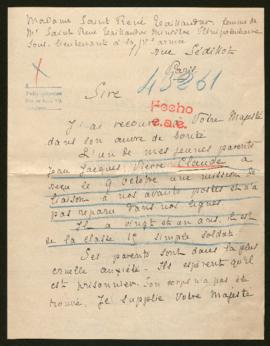 Madame Saint René Taillandier, femme de
Mr Saint René Taillandier Ministre Plénipotentiaire
sous-lieutenant à la 1re armée
rue Sédillot
Paris
43261
Fecho
e.a.e.
Sire
J'ai recours à Votre Majesté
dans son œuvre de bonté
L'un de mes jeunes parents
Jean Jacques Pierre Claude a
reçu le 9 octobre une mission de
liaison à nos avants postes et n'a
pas reparu dans nos lignes
Il a vingt et un ans. Il est
de la classe 15 simple soldat.
Ses parents sont dans la plus
cruelle anxiété. Ils espèrent qu'il
est prisonnier. Son corps n'a pas été
trouvé. Je supplie Votre Majesté